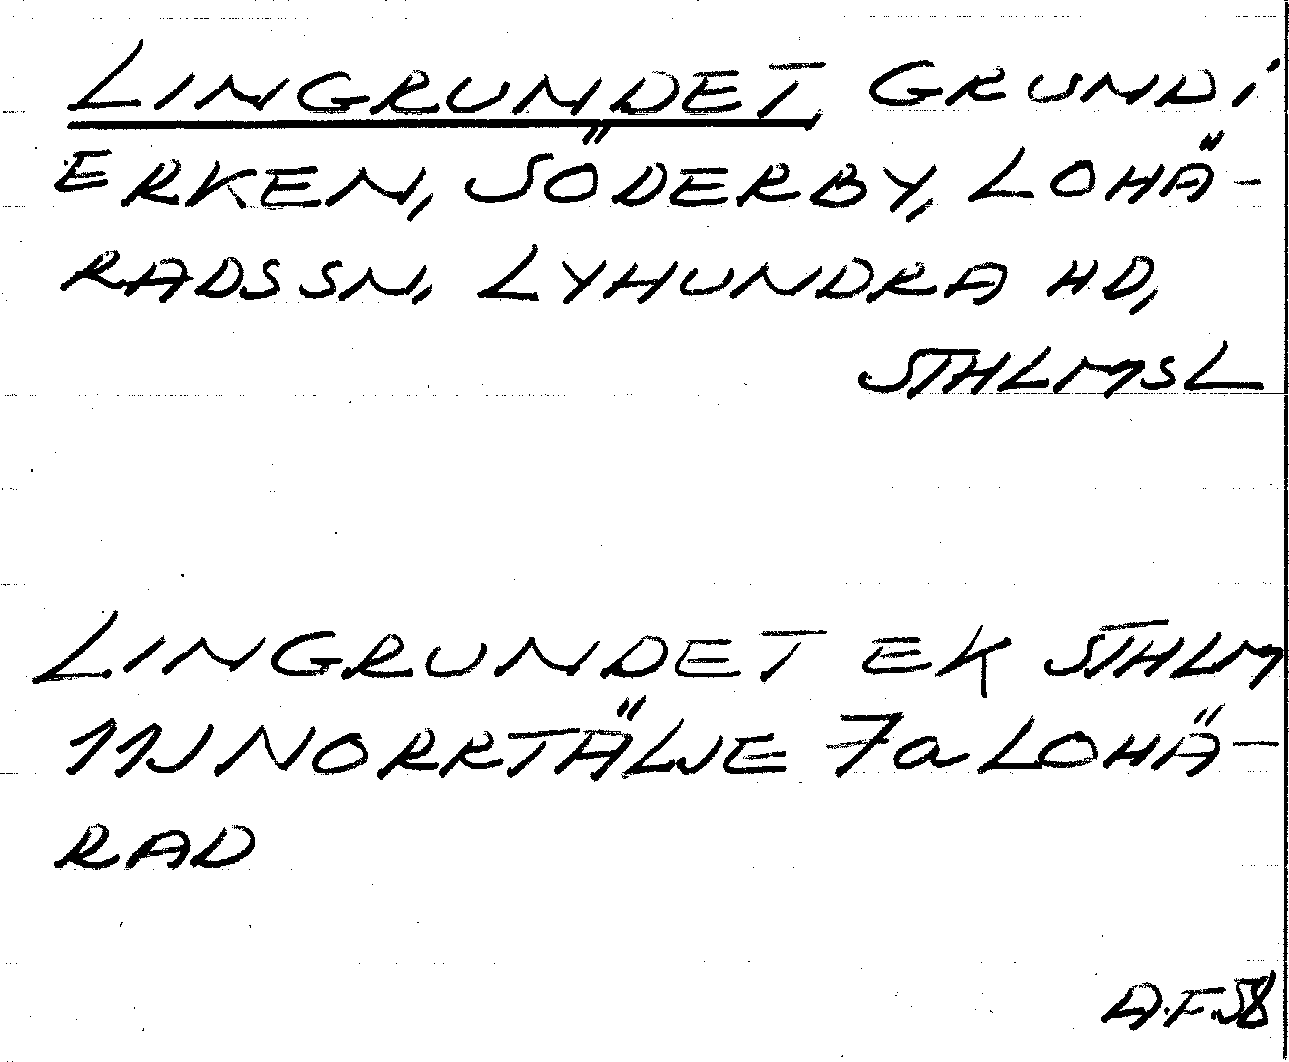 LINGRUNDET, GRUND i
ERKEN, SÖDERBY, LOHÄ-
RADS SN, LYHUNDRA HD,
STHLMS L
LINGRUNDET EK STHLM
11J NORRTÄLJE 7a LOHÄ-
RAD
A.F.58